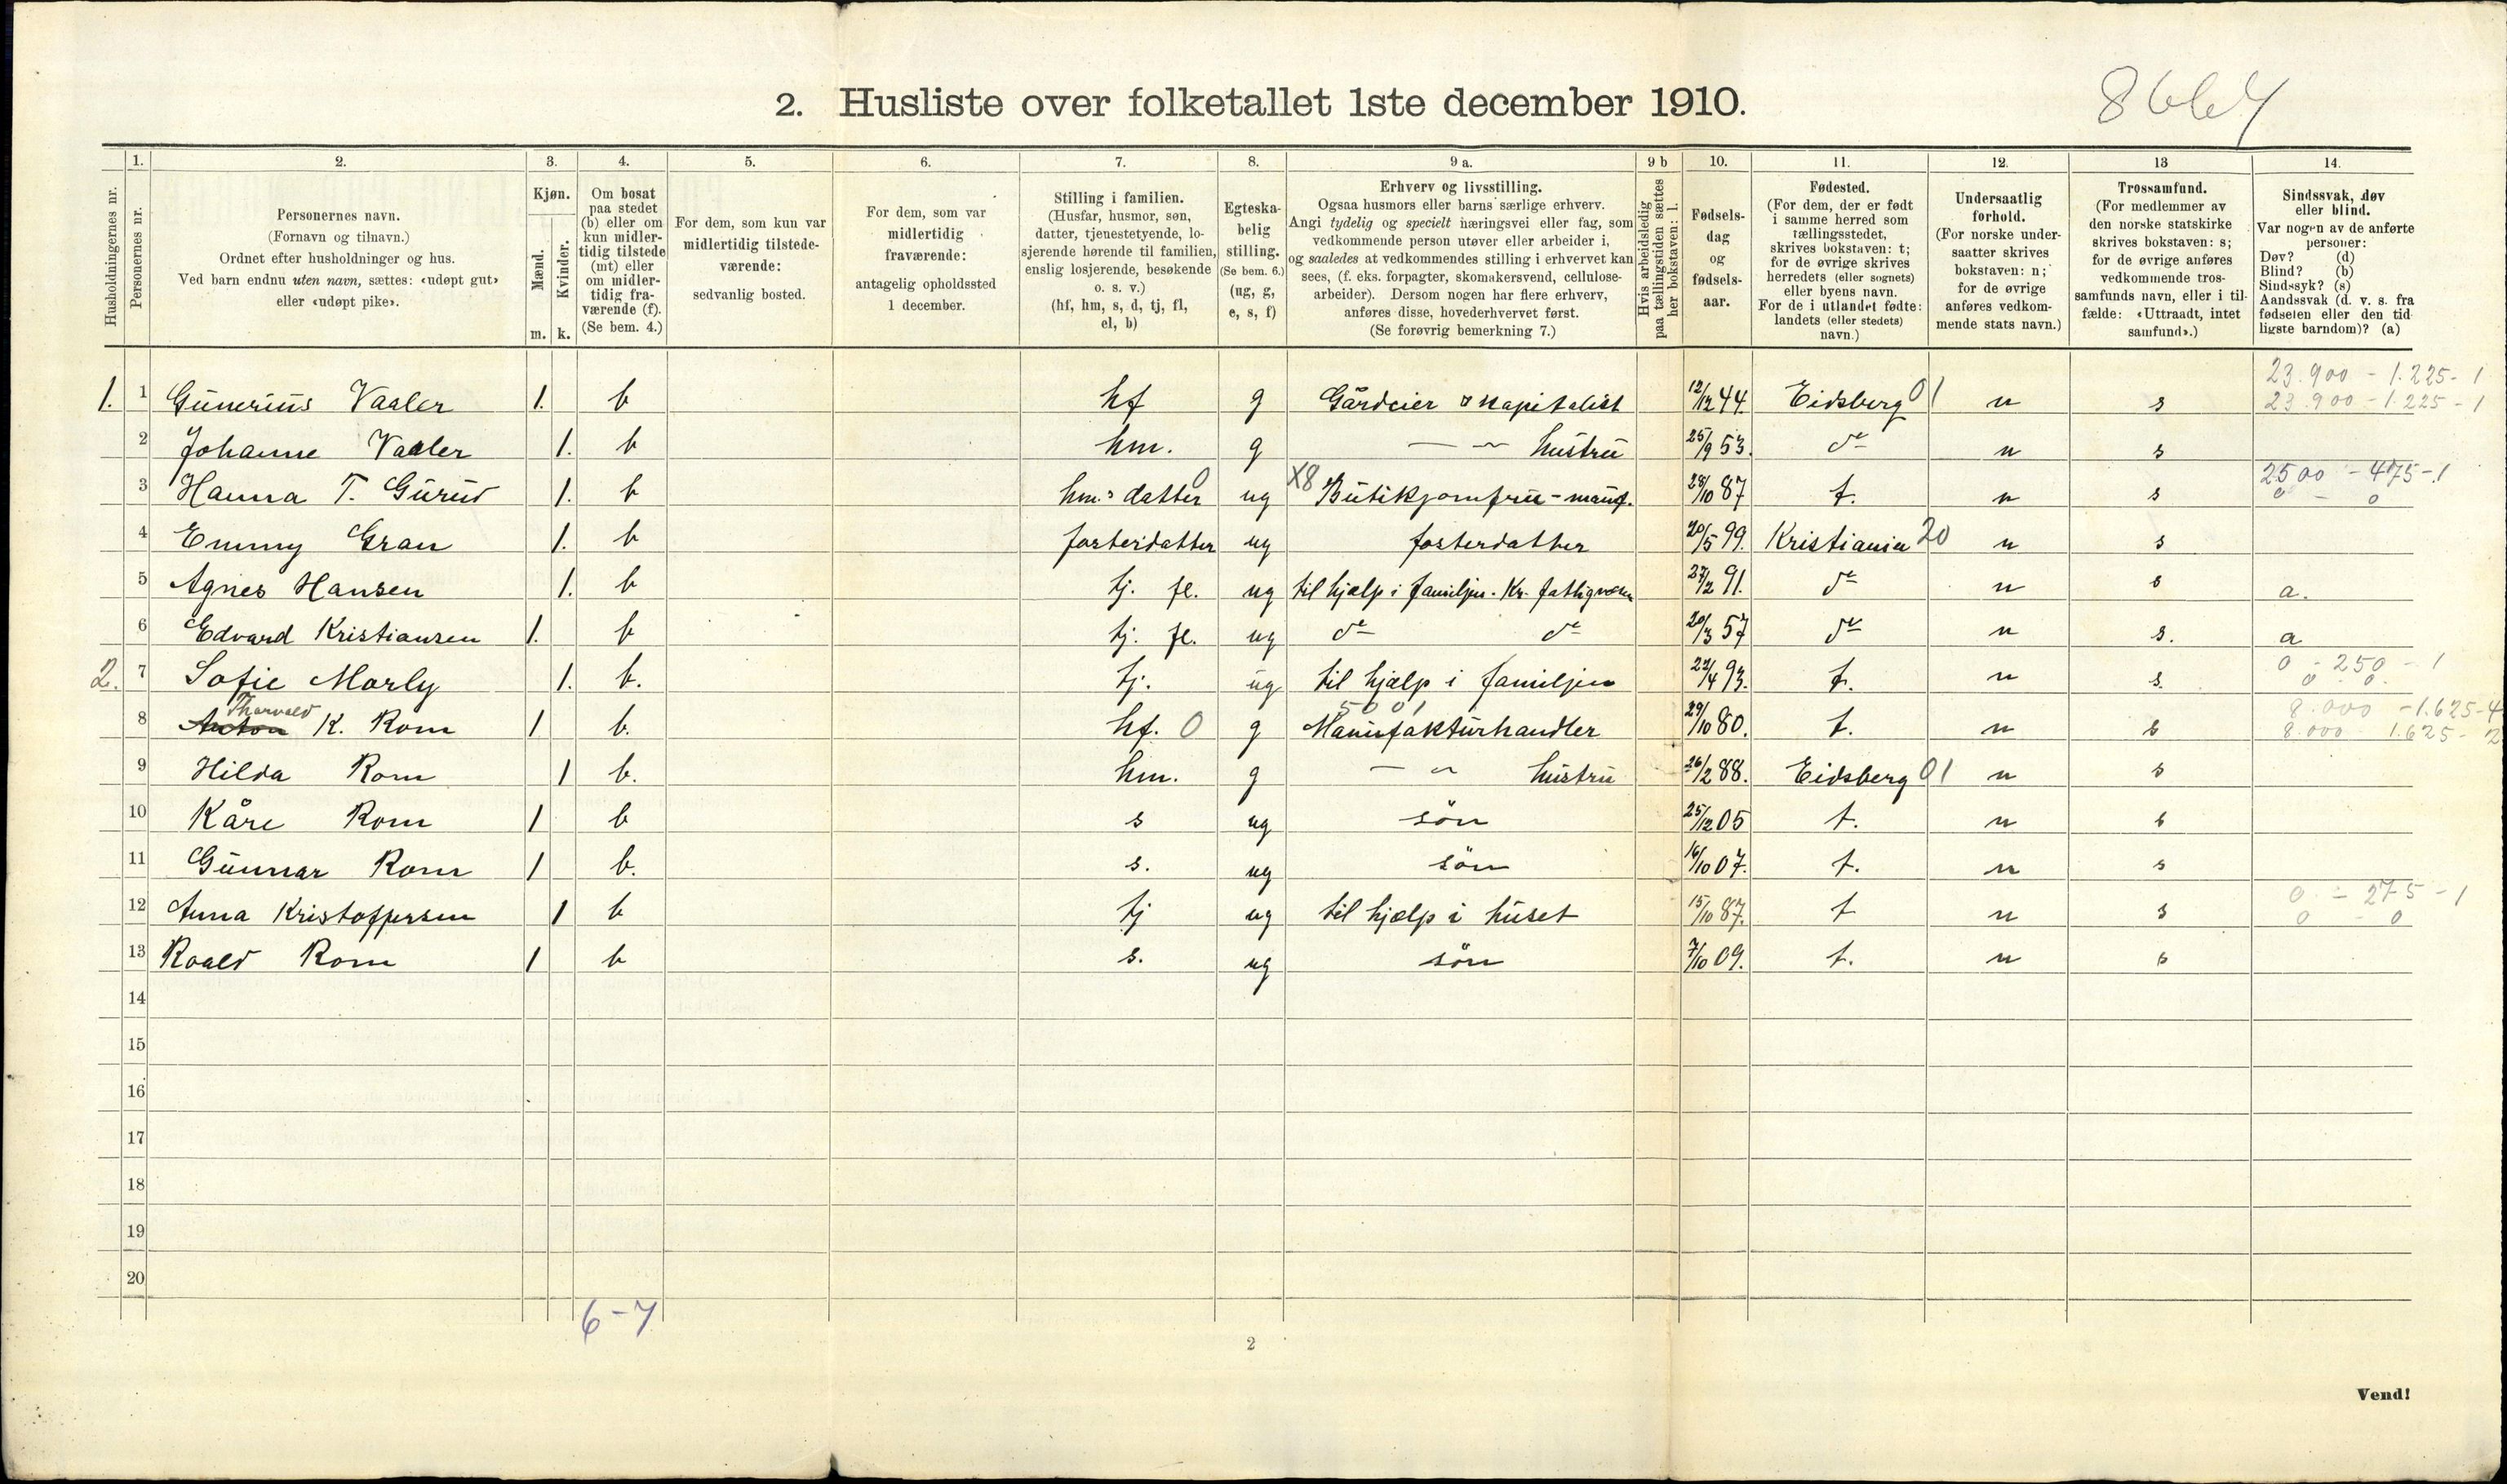 2. Husliste over folketallet 1ste december 1910.
8664
Husholdningernes nr.
1.
Personernes nr.
2.
Personernes navn.
(Fornavn og tilnavn.)
Ordnet efter husholdninger og hus.
Ved barn endnu uten navn, sættes: «udøpt gut»
eller «udøpt pike».
3.
Kjøn.
Mænd.
Kvinder.
m. k.
4.
Om bosat
paa stedet
(b) eller om
kun midler-
tidig tilstede
(mt) eller
om midler-
tidig fra-
værende (f).
(Se bem. 4.)
5.
For dem, som kun var
midlertidig tilstede-
værende:
sedvanlig bosted.
6.
For dem, som var
midlertidig
fraværende:
antagelig opholdssted
1 december.
7.
Stilling i familien.
(Husfar, husmor, søn,
datter, tjenestetyende, lo-
sjerende hørende til familien,
enslig losjerende, besøkende
o. s. v.)
(hf, hm, s, d, tj, fl,
el, b)
8.
Egteska-
belig
stilling.
(Se bem. 6.)
(ug, g,
e, s, f)
9 a.
Erhverv og livsstilling.
Ogsaa husmors eller barns særlige erhverv.
Angi tydelig og specielt næringsvei eller fag, som
vedkommende person utøver eller arbeider i,
og saaledes at vedkommendes stilling i erhvervet kan
sees, (f. eks. forpagter, skomakersvend, cellulose-
arbeider). Dersom nogen har flere erhverv,
anføres disse, hovederhvervet først.
(Se forøvrig bemerkning 7.)
9 b
Hvis arbeidsledig
paa tællingstiden sættes
her bokstaven: l.
10.
Fødsels-
dag
og
fødsels-
aar.
11.
Fødested.
(For dem, der er født
i samme herred som
tællingsstedet,
skrives bokstaven: t;
for de øvrige skrives
herredets (eller sognets)
eller byens navn.
For de i utlandet fødte:
landets (eller stedets)
navn.)
12.
Undersaatlig
forhold.
(For norske under-
saatter skrives
bokstaven: n;
for de øvrige
anføres vedkom-
mende stats navn.)
13
Trossamfund.
(For medlemmer av
den norske statskirke
skrives bokstaven: s;
for de øvrige anføres
vedkommende tros-
samfunds navn, eller i til-
fælde: «Uttraadt, intet
samfund».)
14.
Sindssvak, døv
eller blind.
Var nogen av de anførte
personer:
Døv? (d)
Blind? (b)
Sindssyk? (s)
Aandssvak (d. v. s. fra
fødselen eller den tid
ligste barndom)? (a)
23.900 - 1.225 - 1
1. 1 Gunerius Vaaler 1. b hf g Gårdeier & kapitalist 12/12 44. Eidsberg 01 n s 23.900 - 1.225 - 1
2 Johanne Vaaler 1. b hm. g — " — hustru 25/9 53. do n s
3 Hanna T. Gurud 1. b hm.s datter 0 ug X8 Butikjomfru - manuf. 28/10 87 t. n s 2500 - 475 - 1
0 - 0
4 Emmy Gran 1. b fosterdatter ug fosterdatter 20/5 99. Kristiania 20 n s
5 Agnes Hansen 1. b tj. fl. ug til hjælp i familjen. Kr. fattigvæsen 27/2 91. do n s a.
6 Edvard Kristiansen 1. b tj. fl. ug do do 20/3 57 do n s. a
2. 7 Sofie Morly 1. b. tj. ug til hjælp i familjen 22/4 93. t. n s. 0 - 250 - 1
0 - 0.
Thorvald 5001 8.000 - 1.625 - 4
8 Anton K. Rom 1 b. hf. 0 g Manufakturhandler 29/10 80. t. n s 8.000 - 1.625 - 2
9 Hilda Rom 1 b. hm. g — " — hustru 26/2 88. Eidsberg 01 n s
10 Kåre Rom 1 b s ug sön 25/12 05 t. n s
11 Gunnar Rom 1 b. s. ug sön 16/10 07. t. n s
12 Anna Kristoffersen 1 b tj ug til hjælp i huset 15/10 87. t n s 0 - 275 - 1
0 - 0
13 Roald Rom 1 b s. ug sön 7/10 09. t. n s
14
15
16
17
18
19
20
6-7
2
Vend!